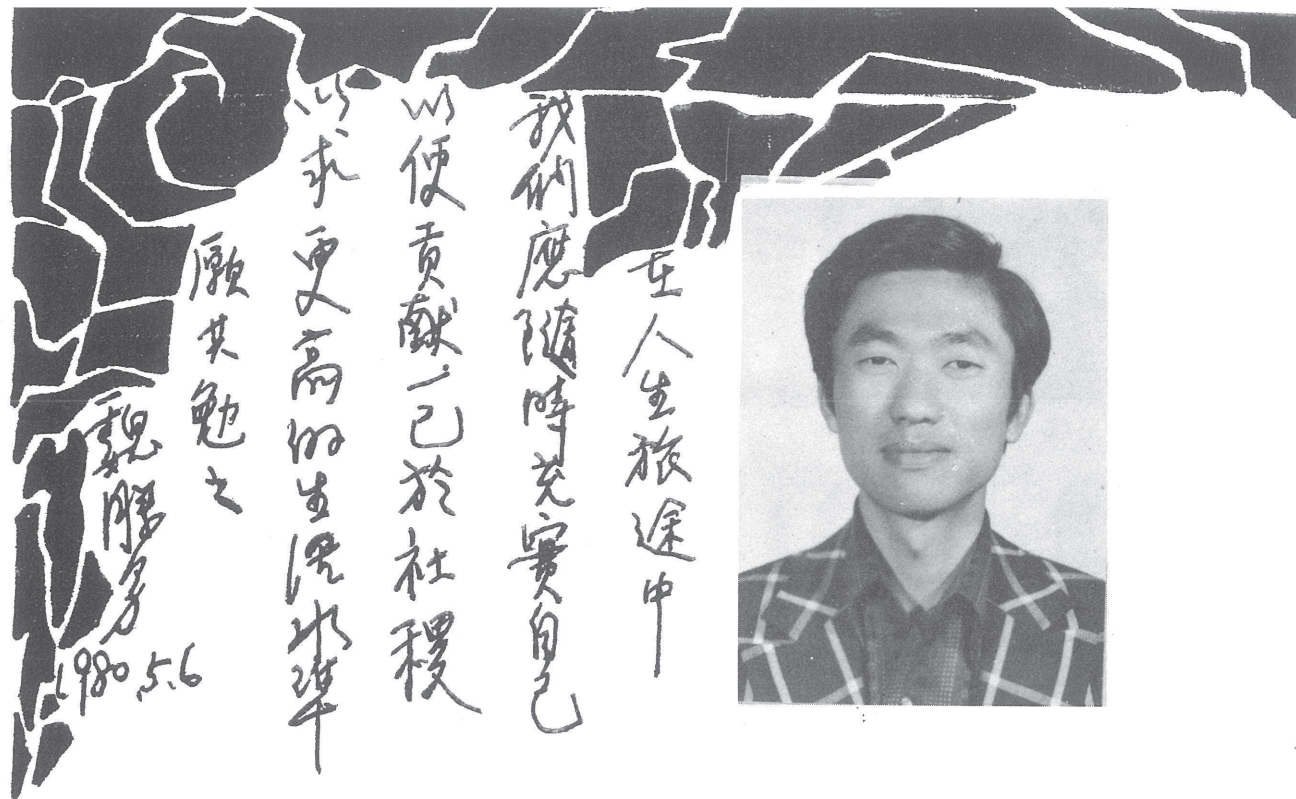 在人生旅途中
我們應隨時充實自己
以便貢獻一己於社稷
以求更高的生活水準
願共勉之
魏勝男
1980.5.6